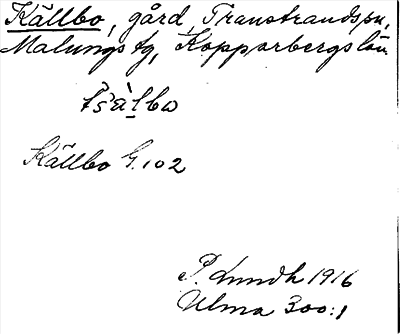 Källbo, gård, Transtrands sn,
Malungs tg, Kopparbergs län.
Källbo G. 102
P. Lundh 1916
Ulma 300:1